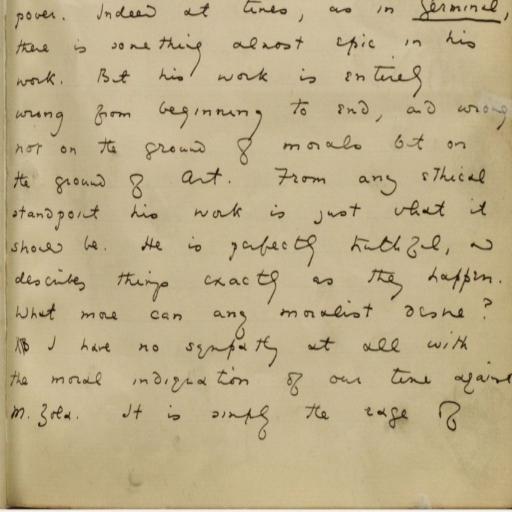 power. Indeed at times, as in Germinal,
there is something almost epic in his
work. But his work is entirely
wrong from beginning to end, and wrong
not on the ground of morals but on
the ground of Art. From any ethical
standpoint his work is just what it
should be. He is perfectly truthful, and
describes things exactly as they happen.
What more can any moralist desire?
I have no sympathy at all with
the moral indignation of our time against
M. Zola. It is simply the rage of